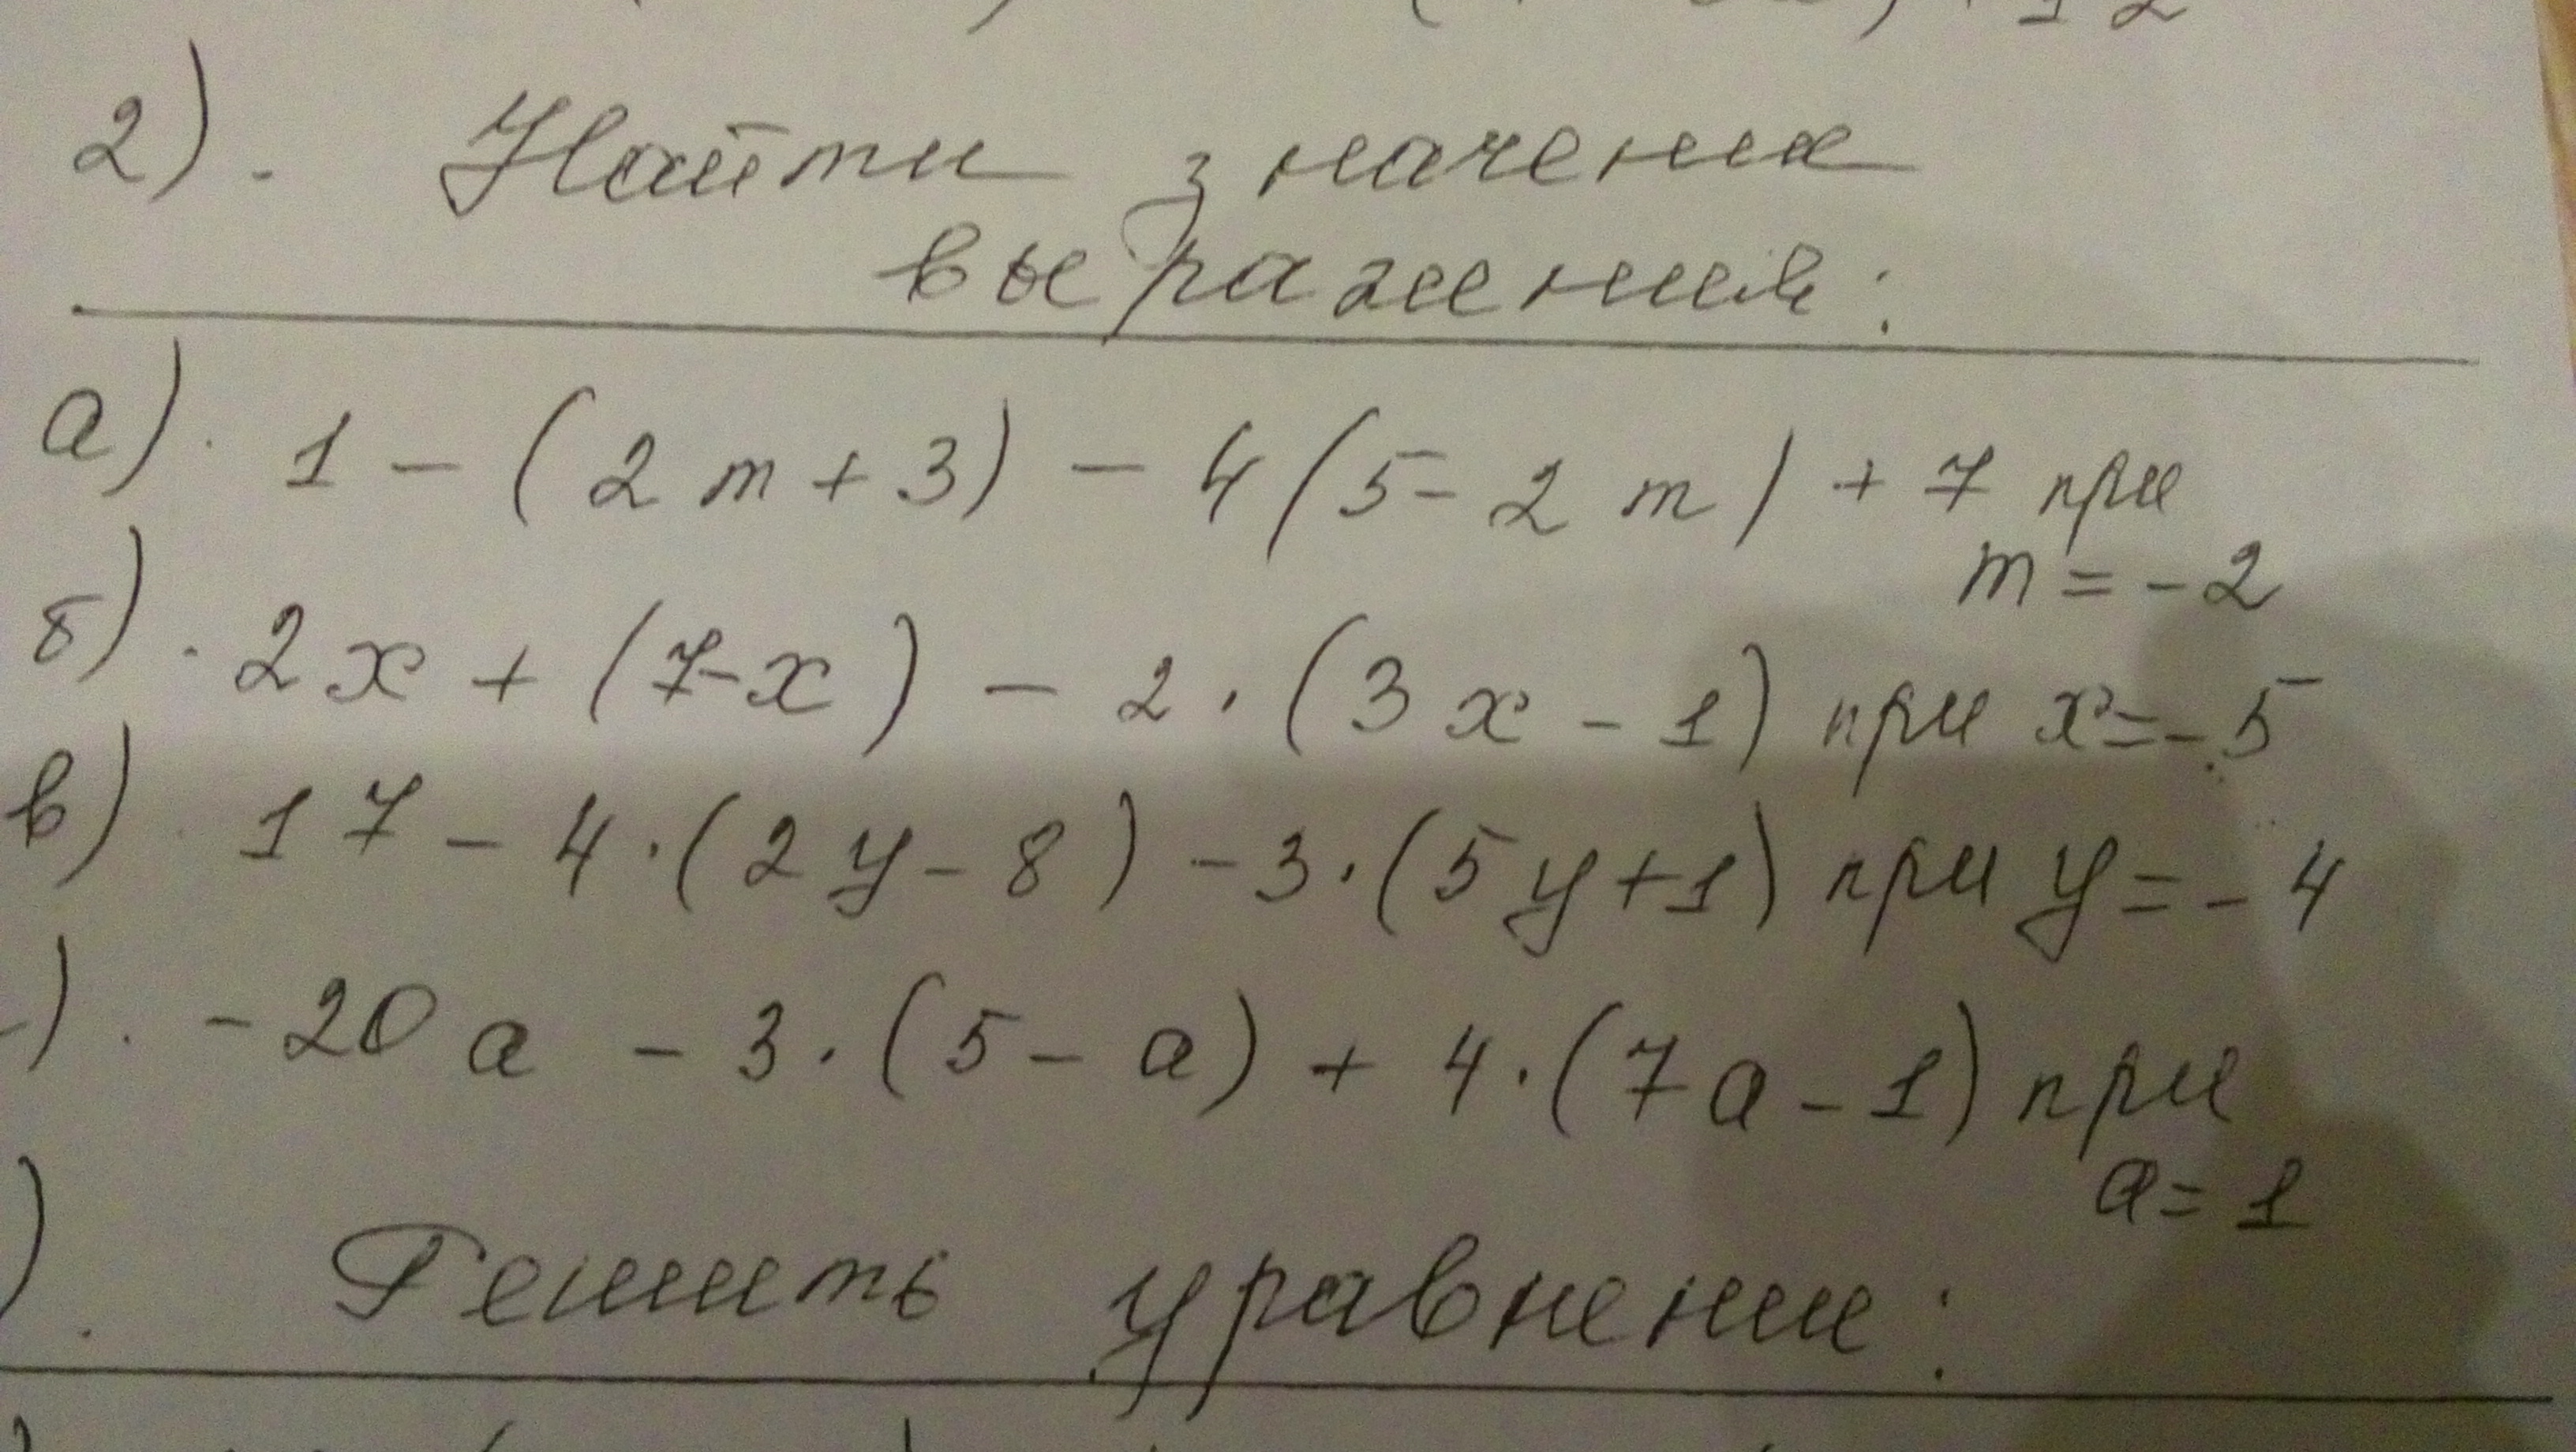 2). Найти значения
выражения:
а). 1 - (2m + 3) - 4(5 - 2m) + 7 при
m = -2
б). 2x + (7-x) - 2 · (3x - 1) при x = -5
в) 17 - 4 · (2y - 8) - 3 · (5y + 1) при y = -4
). -20a - 3 · (5 - a) + 4 · (7a - 1) при
a = 1
). Решить уравнение: